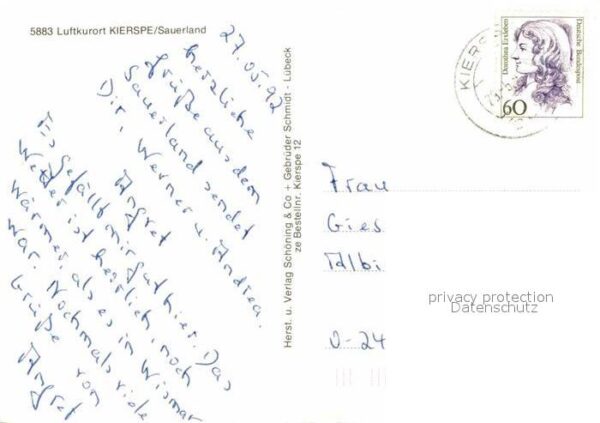 5883 Luftkurort KIERSPE/Sauerland
27.05.92
Herzliche
Grüße aus dem
Sauerland sendet
Dir, Werner u. Andrea.
Anfret
Es gefällt mir gut hier. Das
Wetter ist herrlich, noch
wärmer als es in Wismar
war. Nochmals viele
Grüße von
Anfret
Herst. u. Verlag Schöning & Co + Gebrüder Schmidt - Lübeck
ze Bestellnr. Kierspe 12
KIERSP
Deutsche Bundespost
Dorothea Erxleben
60
Frau
Gies
Albi
O-24
privacy protection
Datenschutz